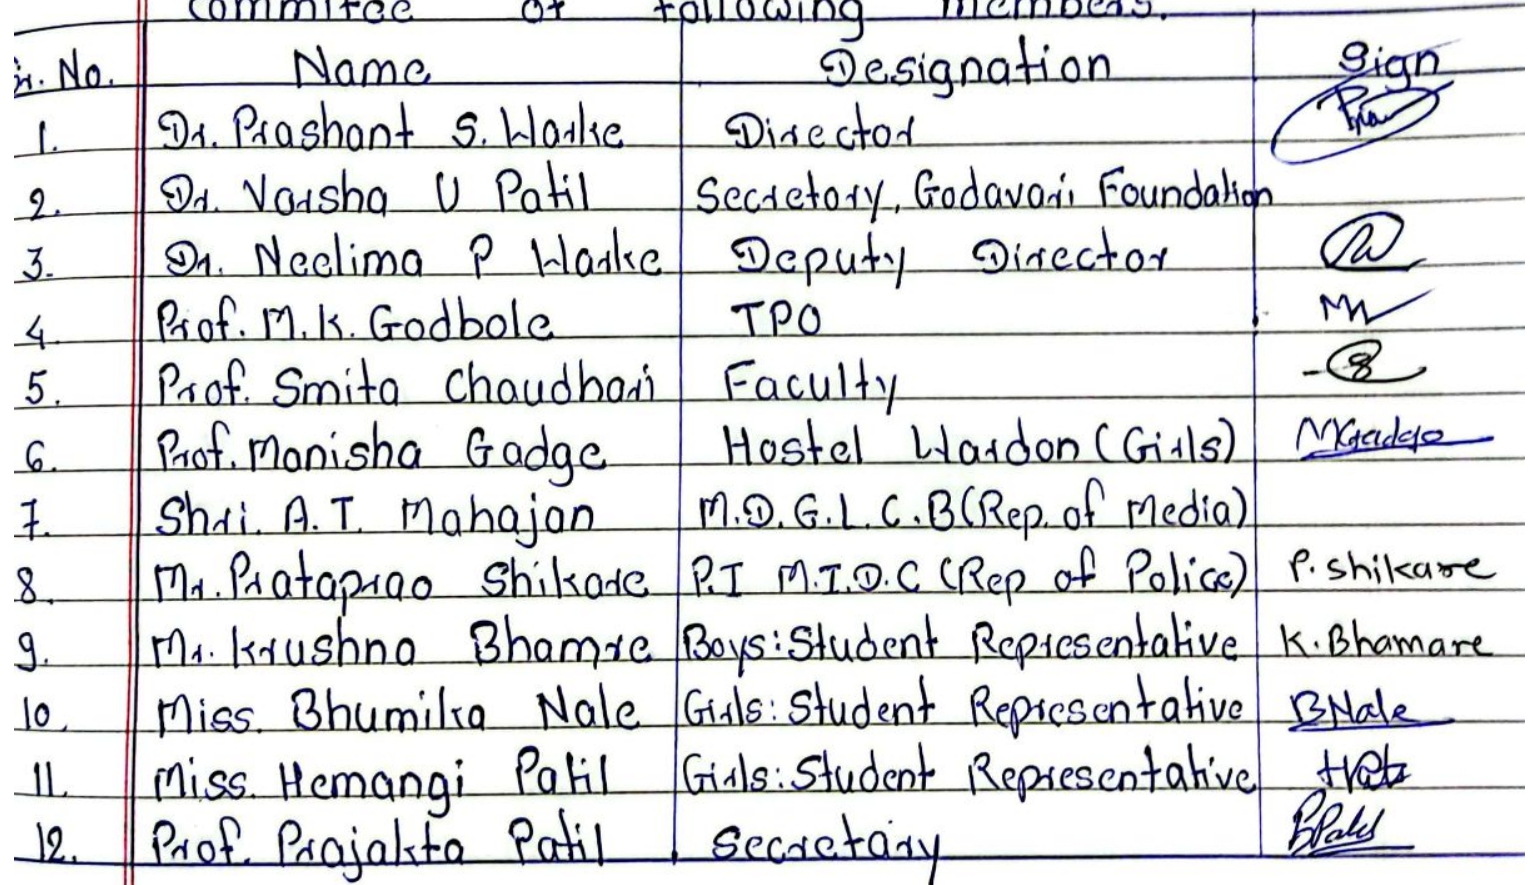 Commitee of following members.
Sr. No. Name Designation Sign
1. Dr. Prashant S. Warke Director
2. Dr. Varsha U Patil Secretory, Godavari Foundation
3. Dr. Neelima P Warke Deputy Director
4. Prof. M.K. Godbole TPO
5. Prof. Smita Chaudhari Faculty
6. Prof. Manisha Gadge Hostel Wardon (Girls) MGadge
7. Shri. A.T. Mahajan M.D.G.L.C.B (Rep. of Media)
8. Mr. Prataprao Shikare P.I M.I.D.C (Rep of Police) P. Shikare
9. Mr. Krushna Bhamre Boys: Student Representative K. Bhamare
10. Miss. Bhumika Nale Girls: Student Representative BNale
11. Miss. Hemangi Patil Girls: Student Representative
12. Prof. Prajakta Patil Secretary